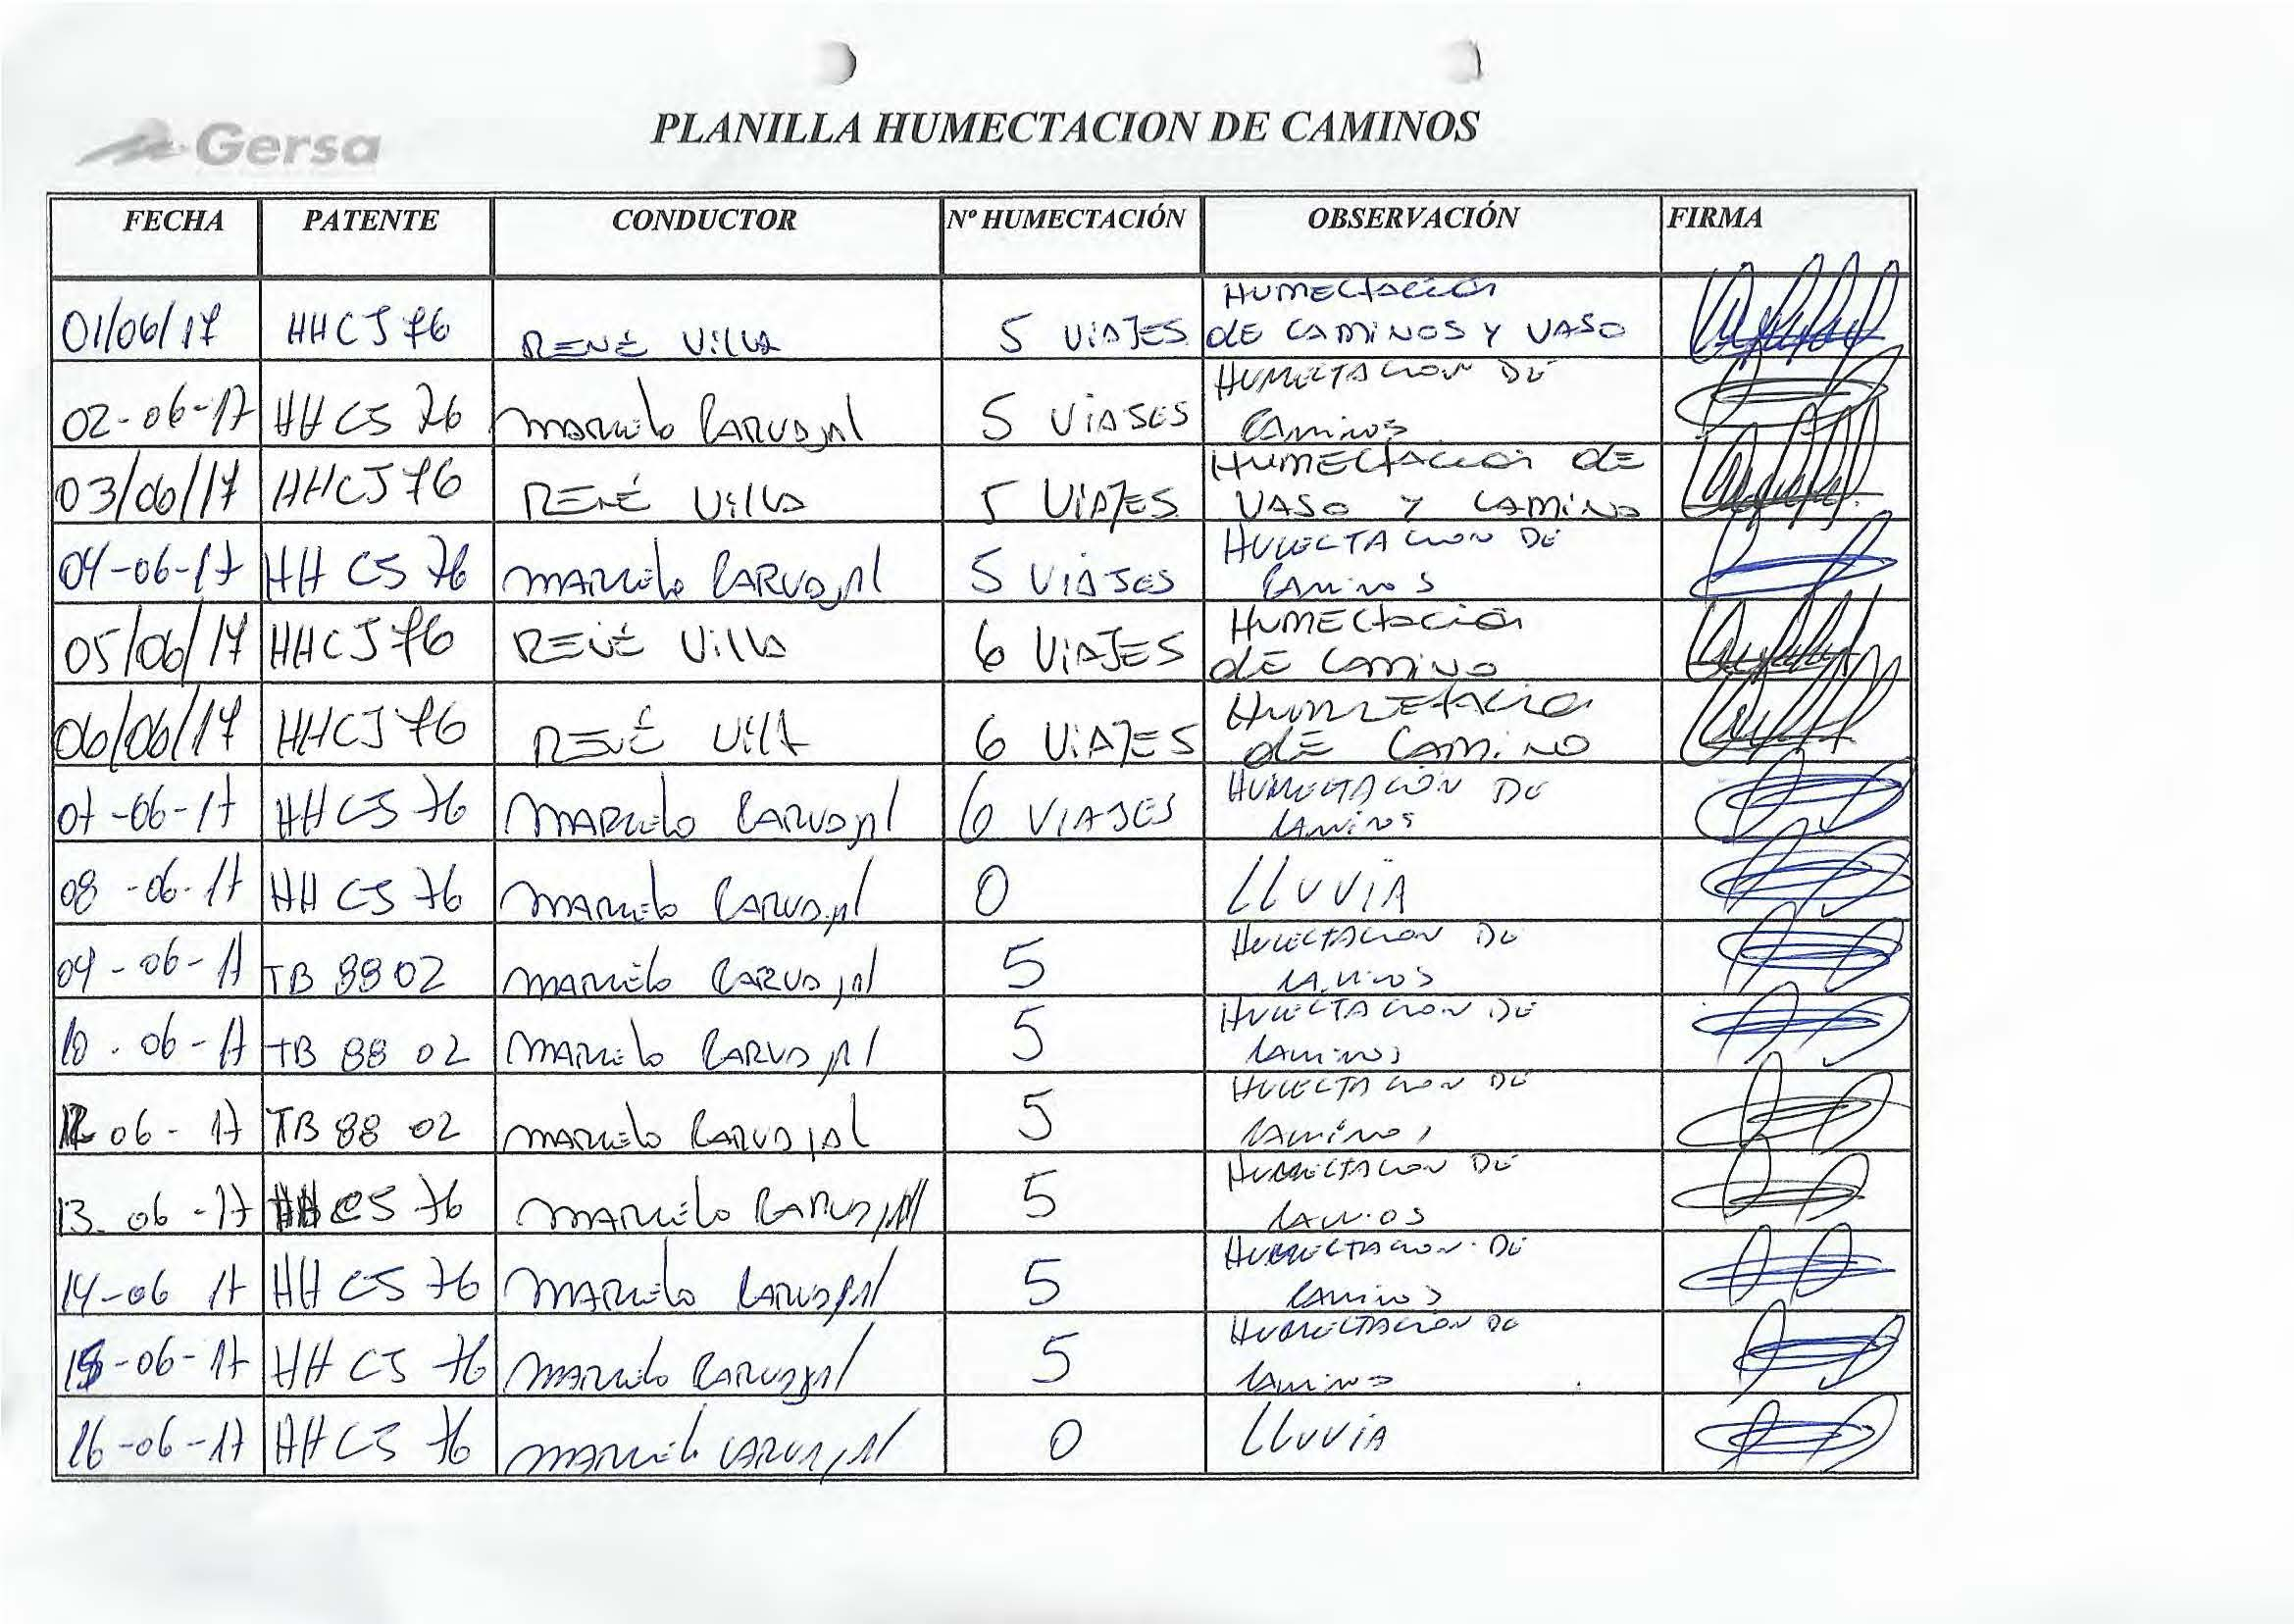 Gersa
PLANILLA HUMECTACION DE CAMINOS
FECHA PATENTE CONDUCTOR Nº HUMECTACIÓN OBSERVACIÓN FIRMA
01/06/17 HHCJ76 RENÉ Villa 5 ViAJES HUMECtación
dE CAMiNOS Y VASO
02-06-17 HH CJ 76 MARCELO CARVAJAL 5 ViAJES HUMECTACION DE
CAMINOS
03/06/17 HHCJ76 RENÉ Villa 5 ViAJES HUMECtACión dE
VASO Y CAMiNO
04-06-17 HH CJ 76 MARCELO CARVAJAL 5 ViAJES HUMECTACION DE
CAMINOS
05/06/17 HHCJ76 RENÉ Villa 6 ViAJES HUMECtación
dE CAMiNO
06/06/17 HHCJ76 RENÉ Villa 6 ViAJES
dE CAMiNO
07-06-17 HH CJ 76 MARCELO CARVAJAL 6 VIAJES HUMECTACION DE
CAMINOS
08-06-17 HH CJ 76 MARCELO CARVAJAL 0 LLUVIA
09-06-17 TB 8802 MARCELO CARVAJAL 5 HUMECTACION DE
CAMINOS
10.06-17 TB 88 02 MARCELO CARVAJAL 5 HUMECTACION DE
CAMINOS
06-17 TB 88 02 MARCELO CARVAJAL 5 HUMECTACION DE
CAMINOS
13-06-17 HH CJ 76 MARCELO CARVAJAL 5 HUMECTACION DE
CAMINOS
14-06 17 HH CJ 76 MARCELO CARVAJAL 5 HUMECTACION DE
CAMINOS
15-06-17 HH CJ 76 MARCELO CARVAJAL 5 HUMECTACION DE
CAMINOS
16-06-17 HH CJ 76 MARCELO CARVAJAL 0 LLUVIA